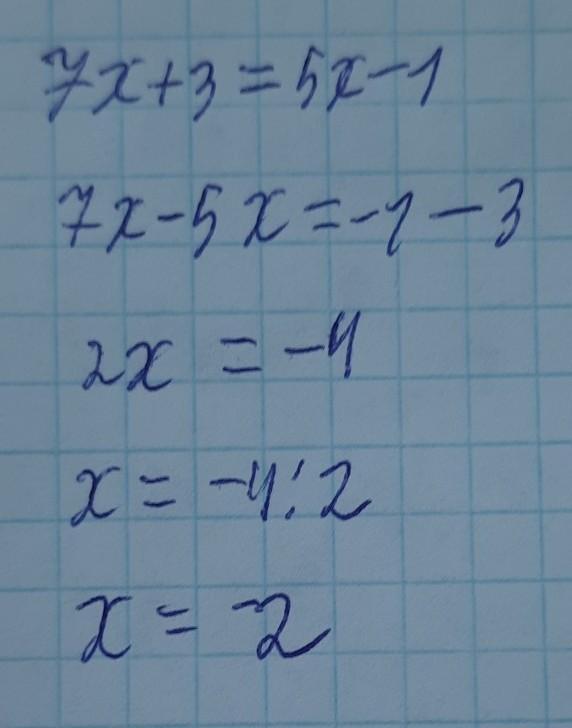 7x+3=5x-1
7x-5x=-1-3
2x=-4
x=-4:2
x=-2